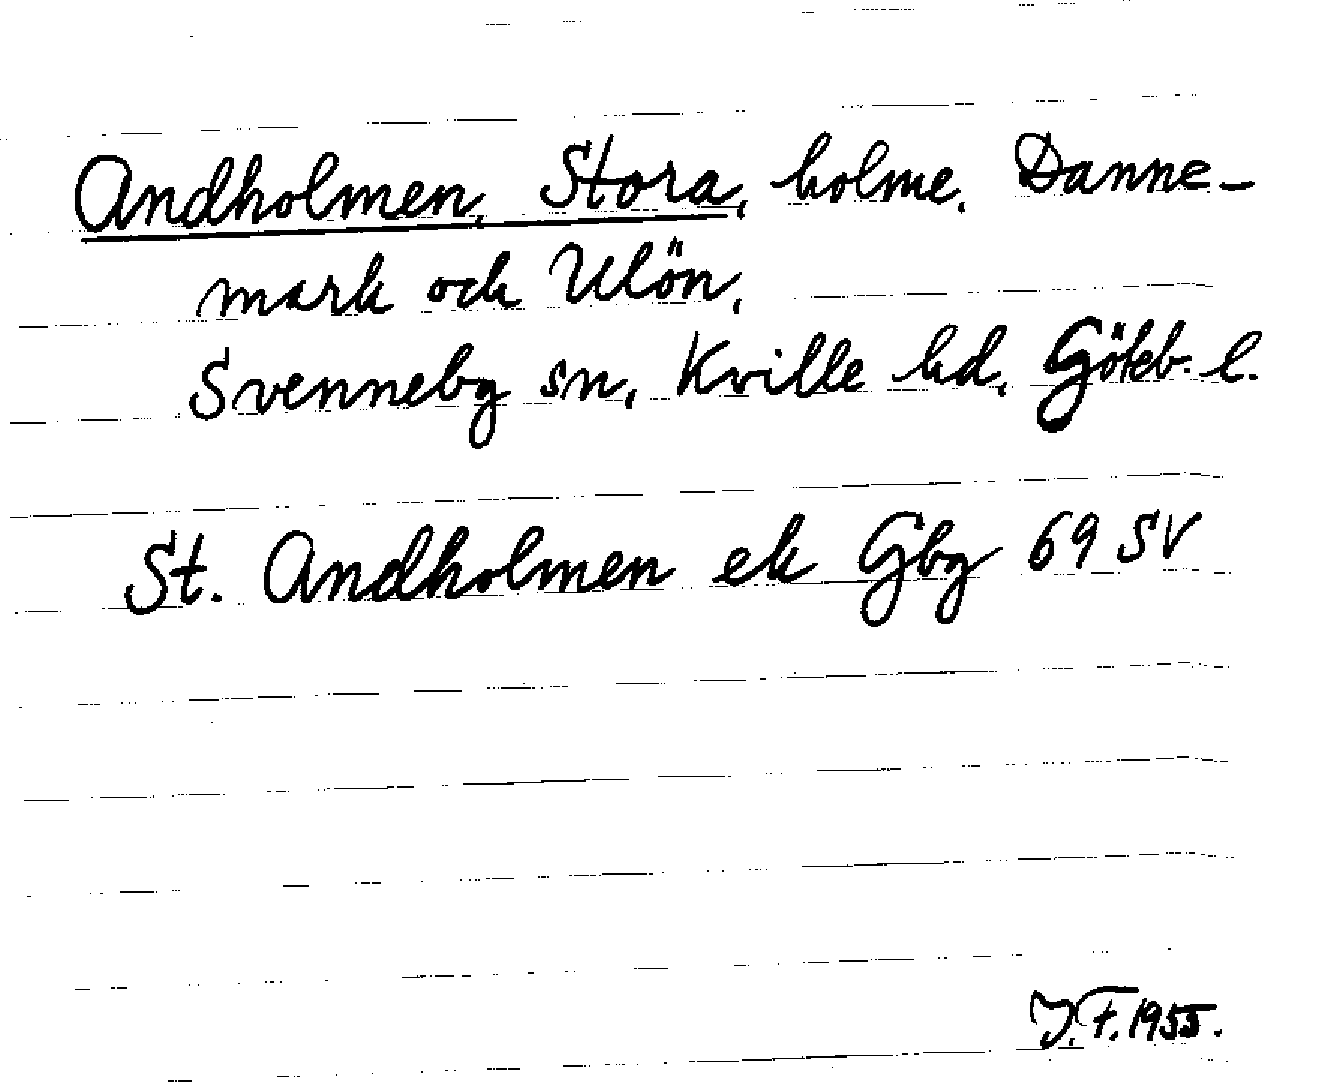 Andholmen, Stora, holme. Danne-
mark och Ulön,
Svenneby sn, Kville hd, Göteb. l.
St. Andholmen ek Gbg 69 SV
J.F. 1955.